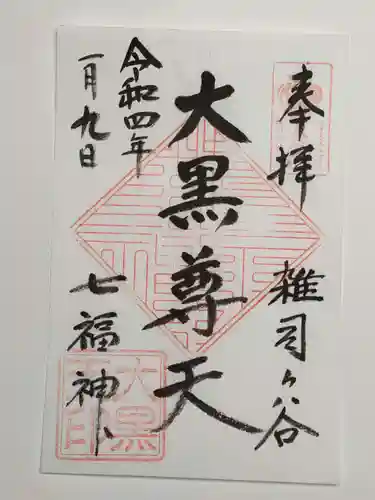 奉拝
雑司ヶ谷
大黒尊天
令和四年
一月九日
七福神
大黒